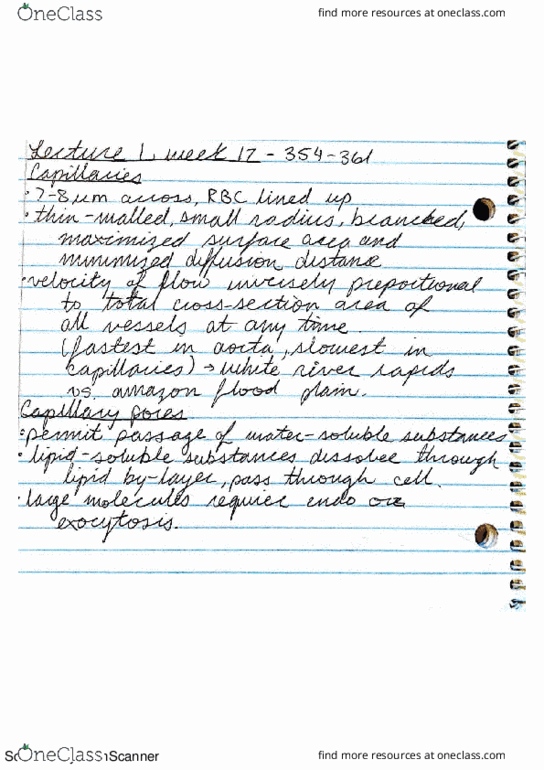 OneClass
find more resources at oneclass.com
Lecture 1, week 12 - 354-361
Capillaries
• 7-8 µm across, RBC lined up
• thin-walled, small radius, branched,
maximized surface area and
minimized diffusion distance
• velocity of flow inversely preportional
to total cross-section area of
all vessels at any time.
(fastest in aorta, slowest in
capillaries) → white river rapids
vs. amazon flood plain.
Capillary pores
• permit passage of water-soluble substances
• lipid-soluble substances dissolve through
lipid by-layer, pass through cell.
• large molecules requier endo or
exocytosis.
OneClass
Scanner
find more resources at oneclass.com